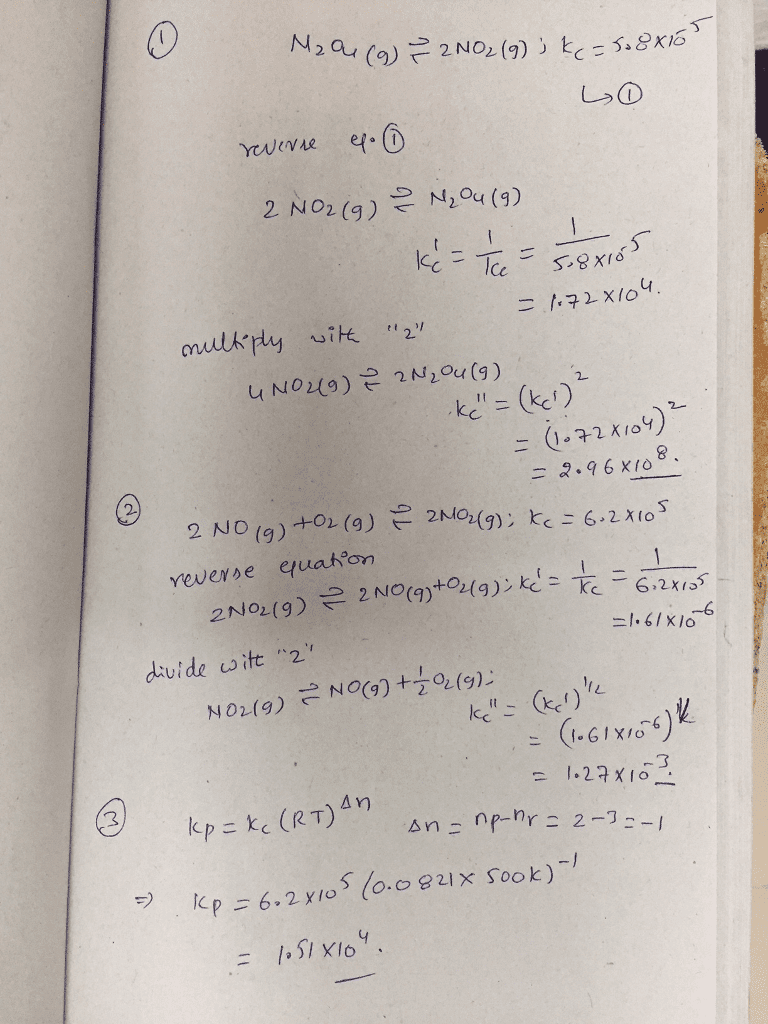 ① N₂O₄(g) ⇌ 2NO₂(g) ; Kc = 5.8×10⁻⁵
↳①
reverse eq. ①
2 NO₂(g) ⇌ N₂O₄(g)
Kc' = 1/Kc = 1/5.8×10⁻⁵
= 1.72×10⁴.
multiply with "2"
4NO₂(g) ⇌ 2N₂O₄(g)
Kc'' = (Kc')²
= (1.72×10⁴)²
= 2.96×10⁸.
② 2 NO(g) + O₂(g) ⇌ 2NO₂(g); Kc = 6.2×10⁵
reverse equation
2NO₂(g) ⇌ 2NO(g)+O₂(g); Kc' = 1/Kc = 1/6.2×10⁵
=1.61×10⁻⁶
divide with "2"
NO₂(g) ⇌ NO(g)+½O₂(g);
Kc'' = (Kc')^1/2
= (1.61×10⁻⁶)^½
= 1.27×10⁻³.
③ Kp = Kc (RT)^Δn Δn = np-nr = 2-3 = -1
⇒ Kp = 6.2×10⁵ (0.0821×500K)⁻¹
= 1.51×10⁴.